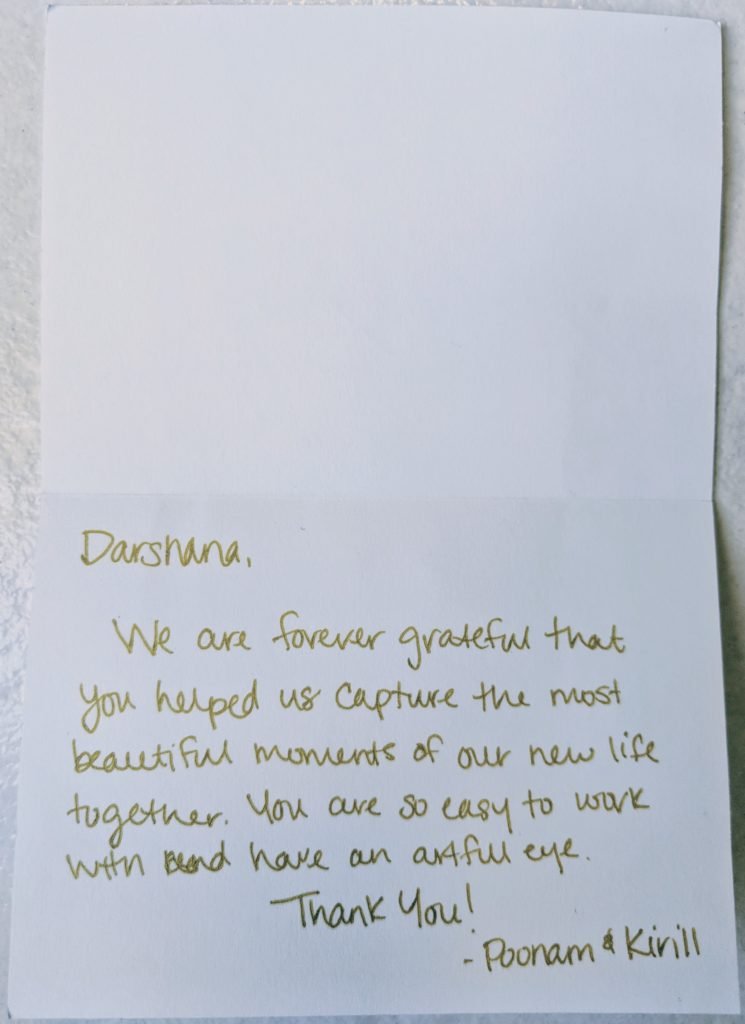 Darshana,
We are forever grateful that
you helped us capture the most
beautiful moments of our new life
together. You are so easy to work
with and have an artful eye.
Thank You!
- Poonam & Kirill